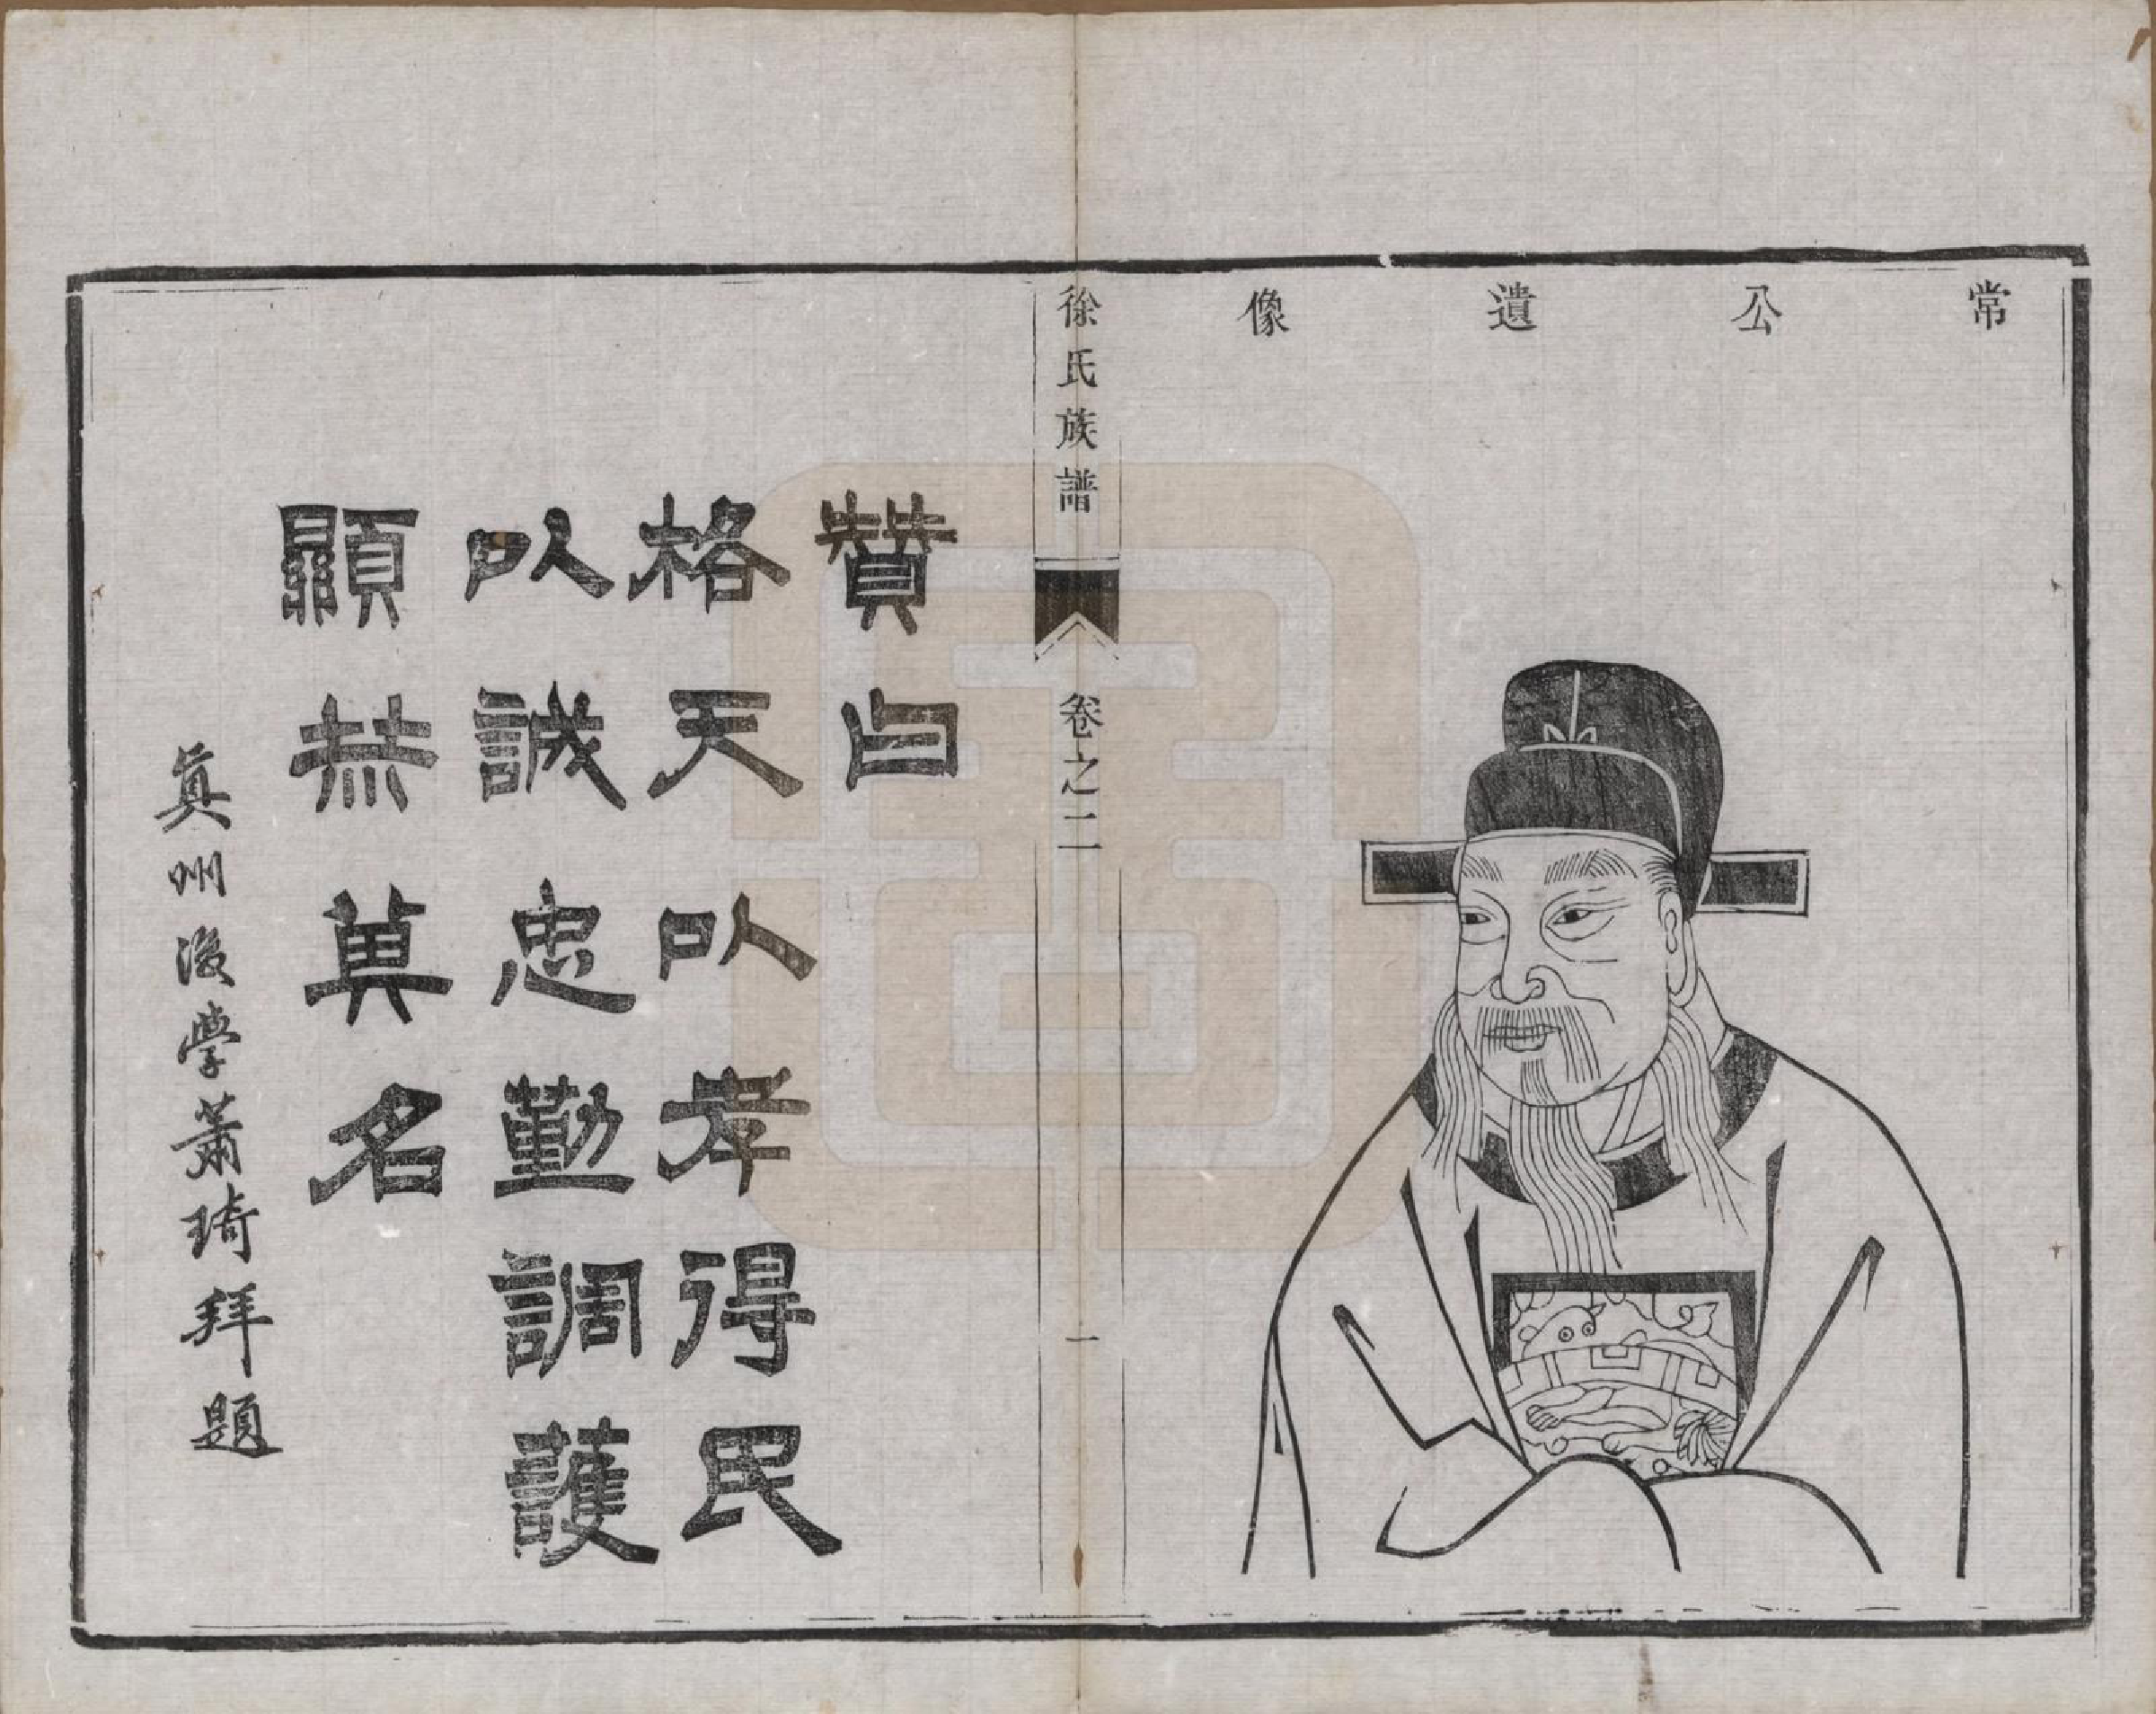 常公遺像
徐氏族譜
卷之二
一
贊曰
格天以孝得民
以誠忠勤調護
顯恭莫名
眞州後學蕭琦拜題